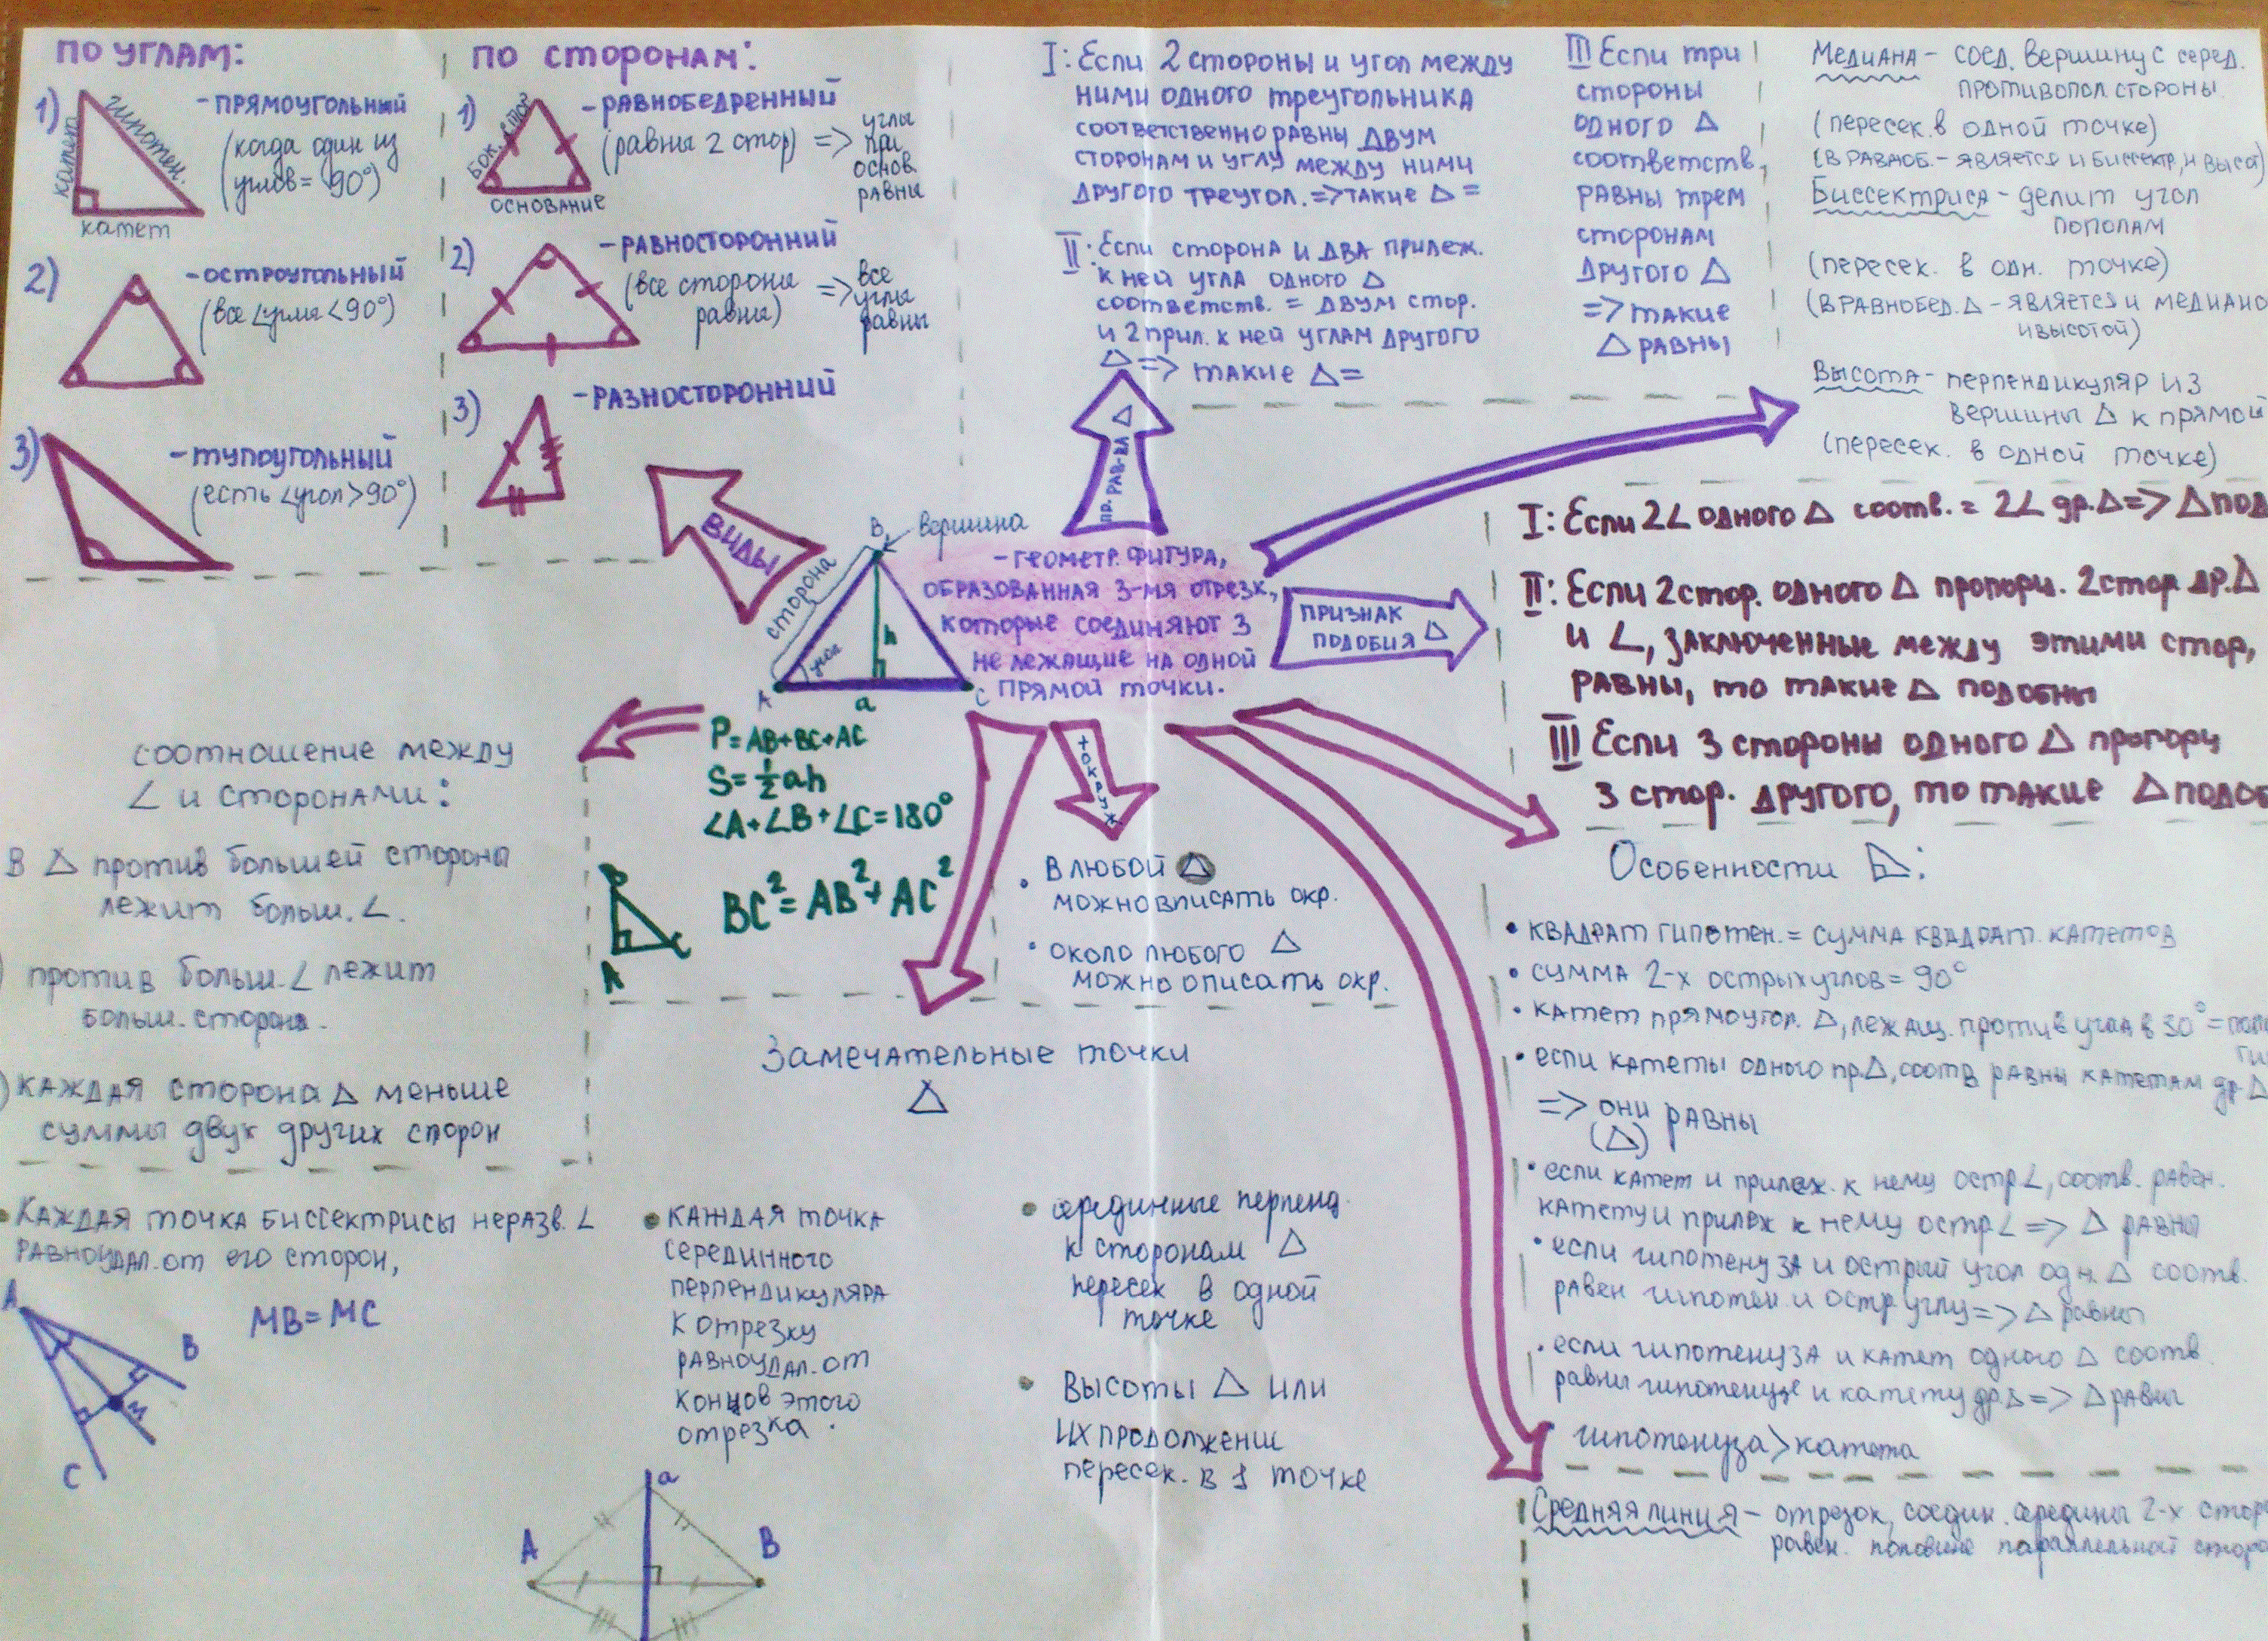 ПО УГЛАМ:
1)
- ПРЯМОУГОЛЬНЫЙ
(когда один из
углов = 90°)
катет
гипотен.
катет
2)
- ОСТРОУГОЛЬНЫЙ
(все ∠углы < 90°)
3)
- ТУПОУГОЛЬНЫЙ
(есть ∠угол > 90°)
ПО СТОРОНАМ:
1)
- РАВНОБЕДРЕННЫЙ
(равны 2 стор) =>
углы
при
основ.
равны
Бок. стор
ОСНОВАНИЕ
2)
- РАВНОСТОРОННИЙ
(все стороны
равны)
=> все
углы
равны
3)
- РАЗНОСТОРОННИЙ
I: Если 2 стороны и угол между
ними одного треугольника
соответственно равны двум
сторонам и углу между ними
другого треугол. => такие △ =
II: Если сторона и два прилеж.
к ней угла одного △
соответств. = двум стор.
и 2 прил. к ней углам другого
△ => такие △ =
III Если три
стороны
одного △
соответств,
равны трем
сторонам
другого △
=> такие
△ равны
Медиана - соед. вершину с серед.
противопол. стороны.
(пересек. в одной точке)
(в равноб. - является и биссектр, и высот)
Биссектриса - делит угол
пополам
(пересек. в одн. точке)
(в равнобед. △ - является и медиано
и высотой)
Высота - перпендикуляр из
вершины △ к прямой
(пересек. в одной точке)
ВИДЫ
ПР. РАВ-ВА △
B
вершина
сторона
угол
h
A
a
C
- ГЕОМЕТР. ФИГУРА,
ОБРАЗОВАННАЯ 3-МЯ ОТРЕЗК,
которые соединяют 3
не лежащие на одной
прямой точки.
ПРИЗНАК
ПОДОБИЯ △
I: Если 2∠ одного △ соотв. = 2∠ др. △ => △ под
II: Если 2 стор. одного △ пропорц. 2 стор др. △
и ∠, заключенные между этими стор,
равны, то такие △ подобны
III Если 3 стороны одного △ пропорц
3 стор. другого, то такие △ подоб
P = AB + BC + AC
S = ½ ah
∠A + ∠B + ∠C = 180°
BC² = AB² + AC²
B
A
C
соотношение между
∠ и сторонами:
В △ против большей стороны
лежит больш. ∠.
) против больш. ∠ лежит
больш. сторона.
) каждая сторона △ меньше
суммы двух других сторон
• В любой △
можно вписать окр.
• около любого △
можно описать окр.
Особенности ◺:
• квадрат гипотен. = сумма квадрат. катетов
• сумма 2-х острых углов = 90°
• катет прямоугол. △, лежащ. против угла в 30° = поло
ги
• если катеты одного пр. △, соотв равны катетам др. △
=> они равны
(△)
• если катет и прилеж. к нему остр ∠, соотв. равен.
катету и прилеж к нему остр ∠ => △ равны
• если гипотенуза и острый угол одн. △ соотв.
равен гипотен. и остр. углу => △ равны
• если гипотенуза и катет одного △ соотв.
равны гипотенузе и катету др. △ => △ равны
гипотенуза > катета
Средняя линия - отрезок, соедин. середины 2-х стор
равен. половине параллельной сторо
Замечательные точки
△
• Каждая точка биссектрисы неразв. ∠
равноудал. от его сторон,
MB = MC
A
B
M
C
• Каждая точка
серединного
перпендикуляра
к отрезку
равноудал. от
концов этого
отрезка.
a
A
B
• серединные перпенд.
к сторонам △
пересек в одной
точке
• Высоты △ или
их продолжение
пересек. в 1 точке